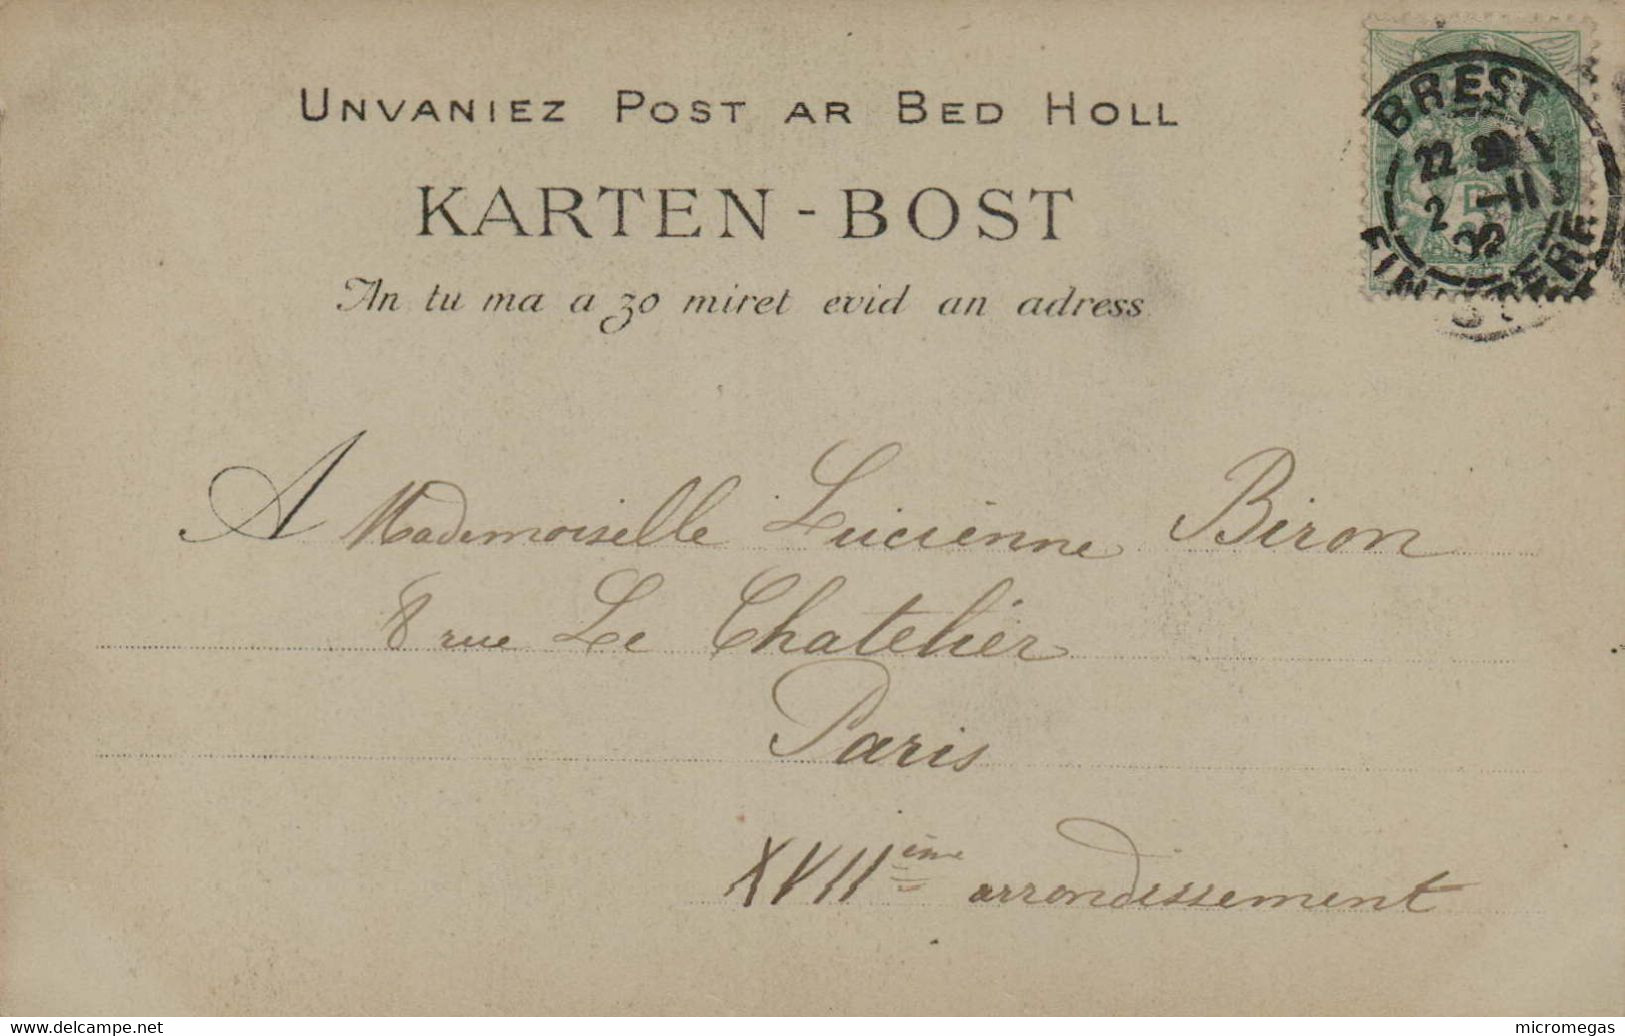 UNVANIEZ POST AR BED HOLL
KARTEN - BOST
An tu ma a zo miret evid an adress
BREST
22
2 -11
02
FINISTERE
5
A Mademoiselle Lucienne Biron
8 rue Le Chatelier
Paris
XVIIème arrondissement
www.delcampe.net
micromegas